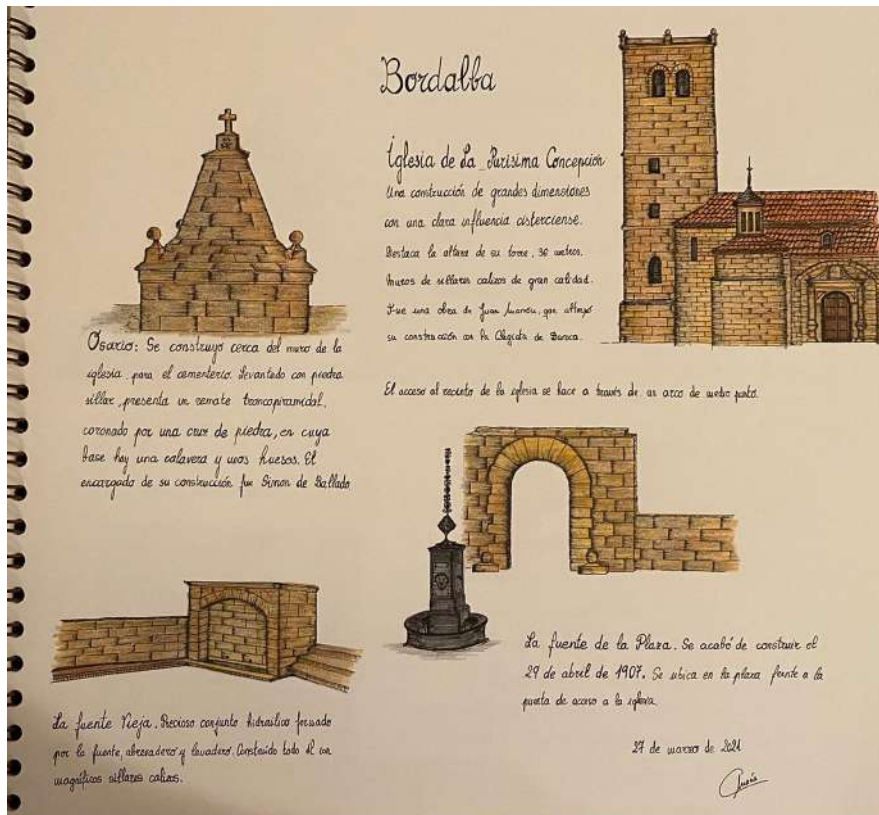 Bordalba
Iglesia de La Purisima Concepción
Una construcción de grandes dimensiones
con una clara influencia cisterciense.
Destaca la altura de su torre, 36 metros.
Muros de sillares calizos de gran calidad.
Fue una obra de Juan
su construcción con la de Daroca.
El acceso al recinto de la iglesia se hace a través de un arco de medio punto.
Osario: Se construyó cerca del muro de la
iglesia, para el cementerio. Levantado con piedra
sillar, presenta un remate troncopiramidal,
coronado por una cruz de piedra, en cuya
base hay una calavera y unos huesos. El
encargado de su construcción fue Simon de Ballado
La fuente de la Plaza. Se acabó de construir el
29 de abril de 1907. Se ubica en la plaza frente a la
puerta de acceso a la iglesia.
La fuente Vieja. Precioso conjunto hidraúlico formado
por la fuente, abrevadero y lavadero. Construido todo él con
magníficos sillares calizos.
27 de marzo de 2021